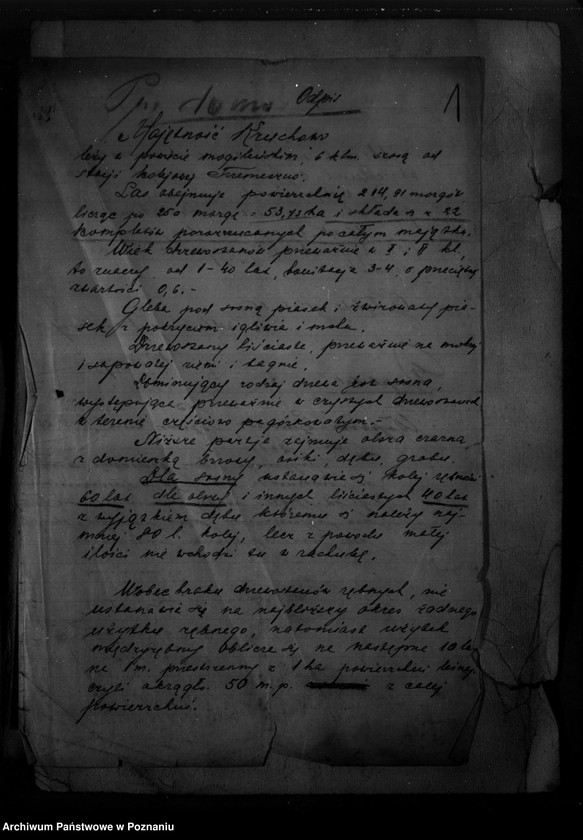 Pro domo Odpis 1
Majętność Kruchowo
leży w powiecie mogileńskim 6 klm. szosą od
stacji kolejowej Tremeszno.
Las obejmuje powierzchnię 214,91 morgów
licząc po 250 morgę = 53,73 ha i składa się z 22
kompletów porozrzucanych po całym majątku.
Wiek drzewostanów przeważnie w I i II kl.
to znaczy od 1-40 lat, bonitacja 3-4, o przeciętnej
zwartości 0,6.-
Gleba pod sosną piasek i żwirowaty pia-
sek z pokryciem igliwia i mchu.
Drzewostany liściaste, przeważnie na mokrej
i sapowatej ziemi i bagnie.
Dominujący rodzaj drzewa jest sosna,
występująca przeważnie w czystych drzewostanach
w terenie częściowo pagórkowatym.-
Niższe partje zajmuje olsza czarna,
z domieszką brzozy, osiki, dębu, grabu.
Dla sosny ustanawia się kolej rębności
60 lat dla olszy i innych liściastych 40 lat
z wyjątkiem dębu któremu się należy naj-
mniej 80 l. kolej, lecz z powodu małej
ilości nie wchodzi tu w rachubę.
Wobec braku drzewostanów rębnych, nie
ustanawia się na najbliższy okres żadnego
użytku rębnego, natomiast użytek
międzyrębny oblicza się na następne 10 lat
na 1 m. przestrzenny z 1 ha powierzchni leśnej,
czyli okrągło 50 m.p. z całej
powierzchni.
Archiwum Państwowe w Poznaniu